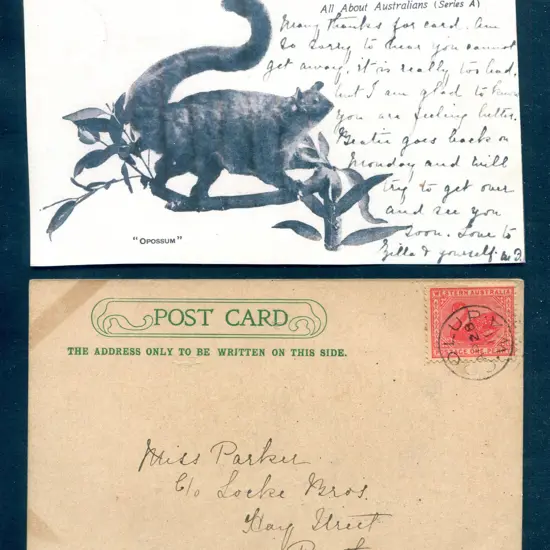 All About Australians (Series A)
Many thanks for card. Am
so sorry to hear you cannot
get away. it is really too bad.
but I am glad to know
you are feeling better.
goes back on
Monday and will
try to get over
and see you
soon. Love to
Zilla & yourself.
"OPOSSUM"
POST CARD
THE ADDRESS ONLY TO BE WRITTEN ON THIS SIDE.
WESTERN AUSTRALIA
ONE PENNY
Miss Parker
C/o Locke Bros.
Hay Street